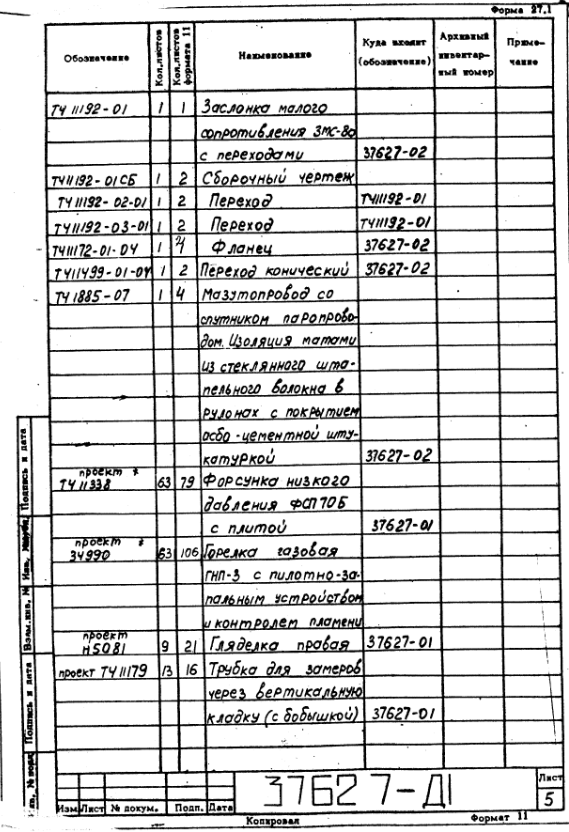 Форма 27.1
Обозначение Кол.листов Кол.листов формата 11 Наименование Куда входит (обозначение) Архивный инвентарный номер Примечание
ТЧ 11192-01 1 1 Заслонка малого
сопротивления ЗМС-80
с переходами 37627-02
ТЧ11192-01СБ 1 2 Сборочный чертеж
ТЧ 11192-02-01 1 2 Переход ТЧ11192-01
ТЧ11192-03-01 1 2 Переход ТЧ11192-01
ТЧ11172-01-04 1 4 Фланец 37627-02
ТЧ11499-01-04 1 2 Переход конический 37627-02
ТЧ1885-07 1 4 Мазутопровод со
спутником паропрово-
дом. Изоляция матами
из стеклянного шта-
пельного волокна в
рулонах с покрытием
асбо-цементной шту-
катуркой 37627-02
проект *
ТЧ11338 63 79 Форсунка низкого
давления ФСП 70Б
с плитой 37627-01
проект *
34990 63 106 Горелка газовая
ГНП-3 с пилотно-за-
пальным устройством
и контролем пламени
проект
Н5081 9 21 Гляделка правая 37627-01
проект ТЧ11179 13 16 Трубка для замеров
через вертикальную
кладку (с бобышкой) 37627-01
Подпись и дата
Взам.инв. №
Подпись и дата
Изм Лист № докум. Подп. Дата
37627-Д1
Лист
5
Копировал Формат 11